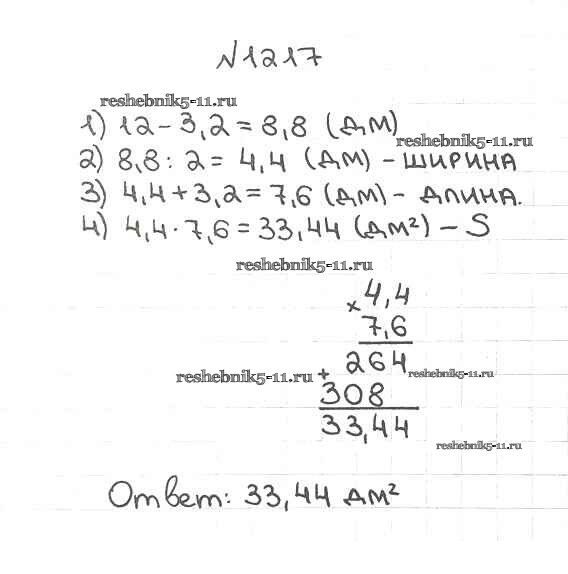 №1217
reshebnik5-11.ru
1) 12 - 3,2 = 8,8 (дм)
reshebnik5-11.ru
2) 8,8 : 2 = 4,4 (дм) - ширина
3) 4,4 + 3,2 = 7,6 (дм) - длина.
4) 4,4 · 7,6 = 33,44 (дм²) - S
reshebnik5-11.ru
× 4,4
7,6
+ 264
reshebnik5-11.ru
reshebnik5-11.ru
308
33,44
reshebnik5-11.ru
Ответ: 33,44 дм²